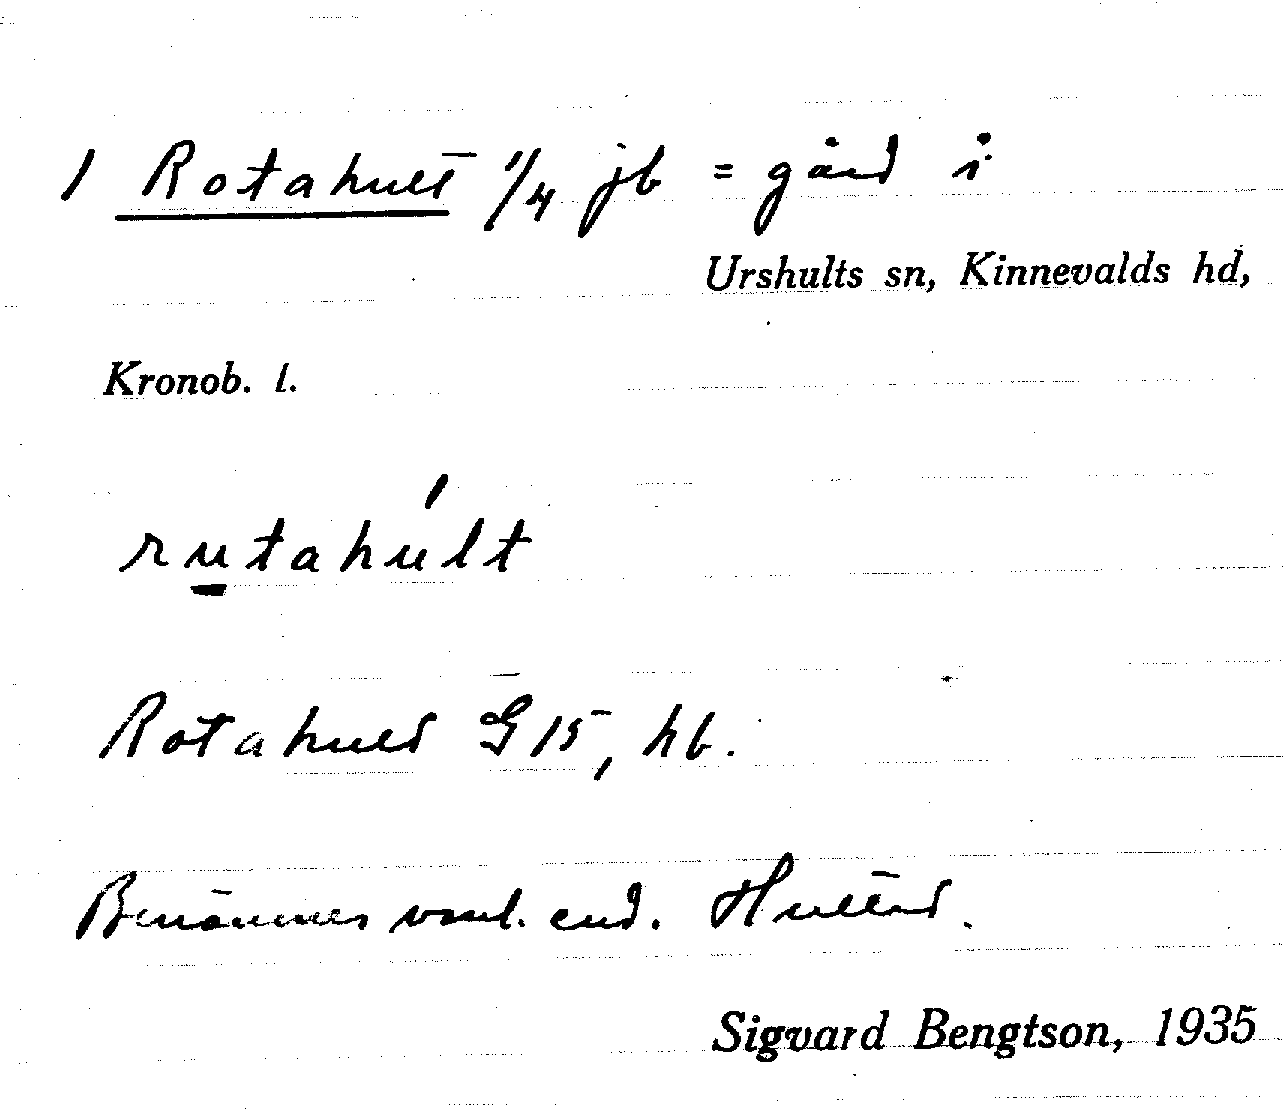 1 Rotahult 1/4 jb = gård i
Urshults sn, Kinnevalds hd,
Kronob. l.
rutahúlt
Rotahult G15, hb.
Benämnes vanl. end. Hultet.
Sigvard Bengtson, 1935